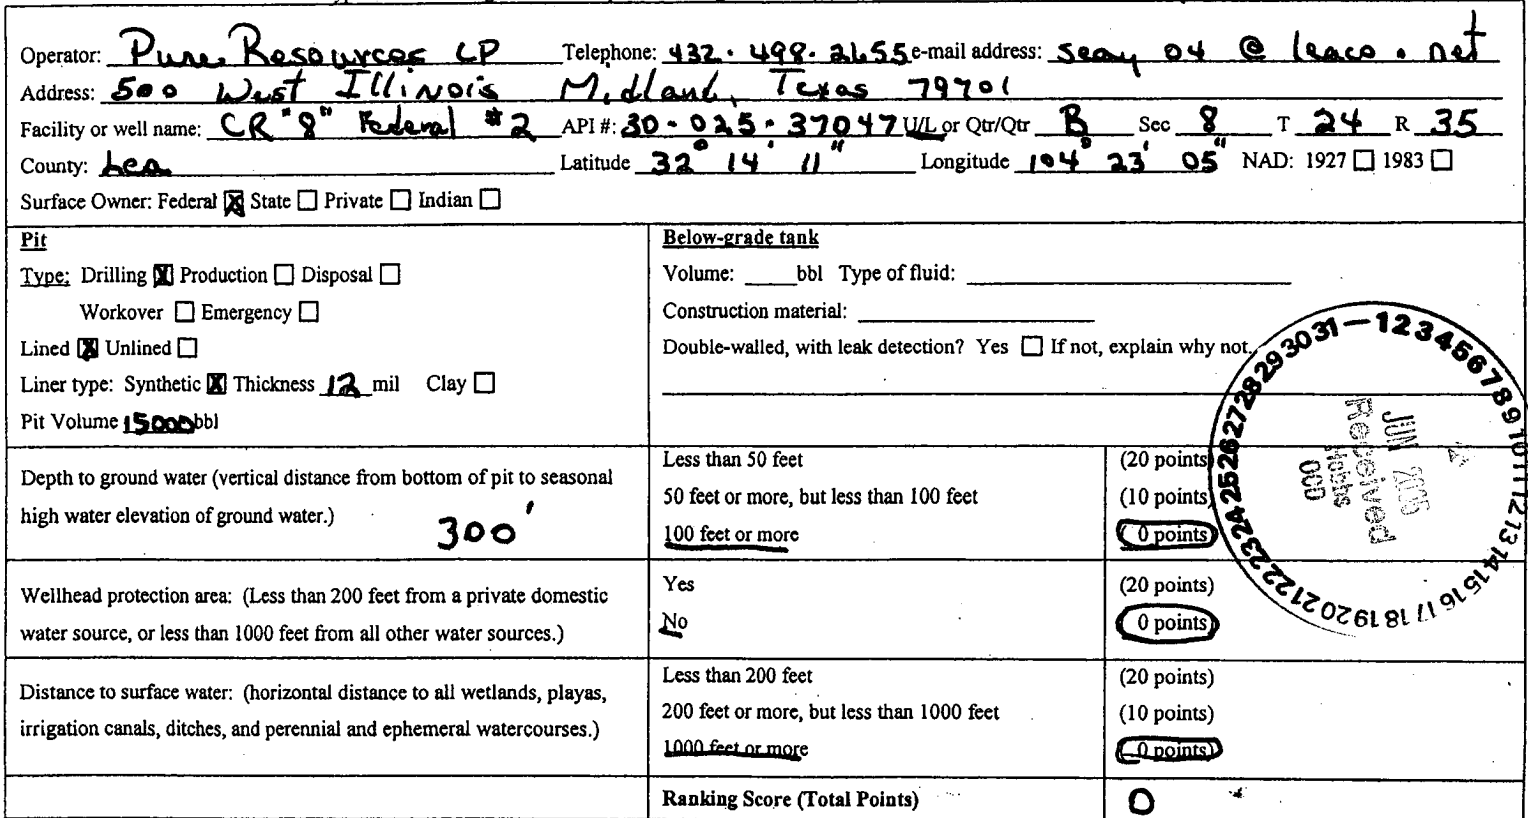 Operator: Pure Resources LP Telephone: 432.498.2655 e-mail address: seay 04 @ leaco.net
Address: 500 West Illinois Midland, Texas 79701
Facility or well name: CR "8" Federal #2 API #: 30-025-37047 U/L or Qtr/Qtr B Sec 8 T 24 R 35
County: Lea Latitude 32° 14' 11" Longitude 104° 23' 05" NAD: 1927 ☐ 1983 ☐
Surface Owner: Federal ☒ State ☐ Private ☐ Indian ☐
Pit
Type: Drilling ☒ Production ☐ Disposal ☐
Workover ☐ Emergency ☐
Lined ☒ Unlined ☐
Liner type: Synthetic ☒ Thickness 12 mil Clay ☐
Pit Volume 15000 bbl
Below-grade tank
Volume: ____ bbl Type of fluid: ____
Construction material: ____
Double-walled, with leak detection? Yes ☐ If not, explain why not.
Depth to ground water (vertical distance from bottom of pit to seasonal
high water elevation of ground water.) 300'
Less than 50 feet (20 points)
50 feet or more, but less than 100 feet (10 points)
100 feet or more (0 points)
Wellhead protection area: (Less than 200 feet from a private domestic
water source, or less than 1000 feet from all other water sources.)
Yes (20 points)
No (0 points)
Distance to surface water: (horizontal distance to all wetlands, playas,
irrigation canals, ditches, and perennial and ephemeral watercourses.)
Less than 200 feet (20 points)
200 feet or more, but less than 1000 feet (10 points)
1000 feet or more (0 points)
Ranking Score (Total Points) 0
1 2 3 4 5 6 7 8 9 10 11 12 13 14 15 16 17 18 19 20 21 22 23 24 25 26 27 28 29 30 31
JUN 2005
Received
Hobbs
OCD